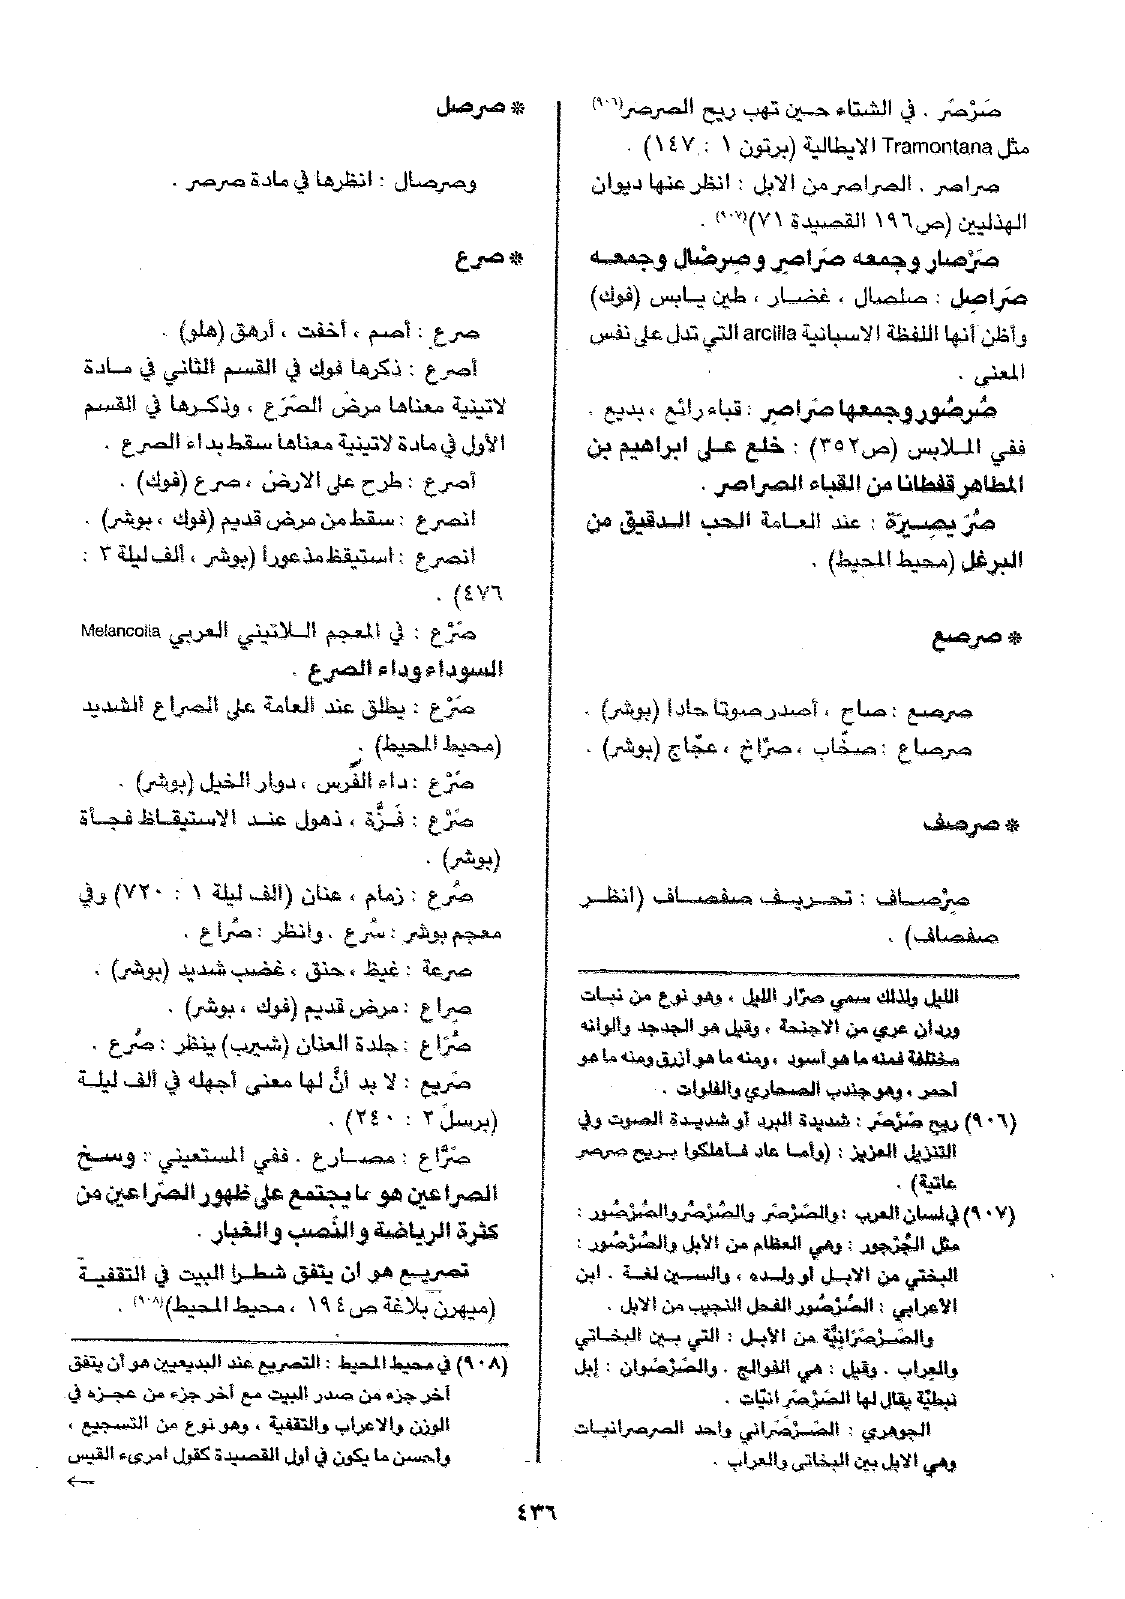 صَرْصَر . في الشتاء حين تهب ريح الصرصر(٩٠٦)
مثل Tramontana الايطالية (برتون ١ : ١٤٧) .
صراصر . الصراصر من الابل : انظر عنها ديوان
الهذليين (ص١٩٦ القصيدة ٧١)(٩٠٧) .
صَرْصار وجمعه صَراصر وصِرصْال وجمعه
صَراصِل : صلصال ، غضار ، طين يابس (فوك)
وأظن أنها اللفظة الاسبانية arcilla التي تدل على نفس
المعنى .
صُرصُور وجمعها صَراصِر : قباء رائع ، بديع .
ففي الملابس (ص٣٥٢) : خلع على ابراهيم بن
المطاهر قفطانا من القباء الصراصر .
صُرَيصِيرَة : عند العامة الحب الدقيق من
البرغل (محيط المحيط) .
* صرصع
صرصع : صاح ، أصدر صوتا حادا (بوشر) .
صرصاع : صخّاب ، صرّاخ ، عجّاج (بوشر) .
* صرصف
صِرْصاف : تحريف صفصاف (انظر
صفصاف) .
الليل ولذلك سمي صرّار الليل ، وهو نوع من نبات
وردان عري من الاجنحة ، وقيل هو الجدجد والوانه
مختلفة فمنه ما هو أسود ، ومنه ما هو أزرق ومنه ما هو
أحمر ، وهو جندب الصحاري والفلوات .
(٩٠٦) ريح صَرْصَر : شديدة البرد أو شديدة الصوت وفي
التنزيل العزيز : (وأما عاد فأهلكوا بريح صرصر
عاتية) .
(٩٠٧) في لسان العرب : والصَرْصَر والصُرْصُر والصُرْصُور :
مثل الجُرْجور : وهي العظام من الأبل والصُرْصُور :
البختي من الابل أو ولده ، والسين لغة . ابن
الأعرابي : الصُرْصُور الفحل النجيب من الابل .
والصَرْصَرانِيَّة من الأبل : التي بين البخاتي
والعراب . وقيل : هي الفوالج . والصَرْصَوان : إبل
نبطيّة يقال لها الصَرْصَرانيّات .
الجوهري : الصَرْصَراني واحد الصرصرانيات
وهي الابل بين البخاتي والعراب .
* صرصل
وصرصال : انظرها في مادة صرصر .
* صرع
صرع : أصم ، أخفت ، أرهق (هلو) .
أصرع : ذكرها فوك في القسم الثاني في مادة
لاتينية معناها مرض الصَرَع ، وذكرها في القسم
الأول في مادة لاتينية معناها سقط بداء الصرع .
أصرع : طرح على الارض ، صرع (فوك) .
انصرع : سقط من مرض قديم (فوك ، بوشر) .
انصرع : استيقظ مذعوراً (بوشر ، ألف ليلة ٣ :
٤٧٦) .
صَرْع : في المعجم اللاتيني العربي Melancolia
السوداء وداء الصرع .
صَرْع : يطلق عند العامة على الصراع الشديد
(محيط المحيط) .
صَرْع : داء الفَرس ، دوار الخيل (بوشر) .
صَرْع : فَزَّة ، ذهول عند الاستيقاظ فجأة
(بوشر) .
صُرع : زمام ، عنان (الف ليلة ١ : ٧٢٠) وفي
معجم بوشر : سُرع . وانظر : صُراع .
صرعة : غيظ ، حنق ، غضب شديد (بوشر) .
صراع : مرض قديم (فوك ، بوشر) .
صُرَاع : جلدة العنان (شيرب) ينظر : صُرع .
صَريع : لا بد أنَّ لها معنى أجهله في ألف ليلة
(برسل ٣ : ٢٤٠) .
صَرَّاع : مصارع . ففي المستعيني : وسخ
الصراعين هو ما يجتمع على ظهور الصَراعين من
كثرة الرياضة والنَصب والغبار .
تصريع هو ان يتفق شطرا البيت في التقفية
(ميهرن بلاغة ص١٩٤ ، محيط المحيط)(٩٠٨) .
(٩٠٨) في محيط المحيط : التصريع عند البديعيين هو أن يتفق
آخر جزء من صدر البيت مع آخر جزء من عجزه في
الوزن والاعراب والتقفية ، وهو نوع من التسجيع ،
وأحسن ما يكون في أول القصيدة كقول امرىء القيس
←
٤٣٦